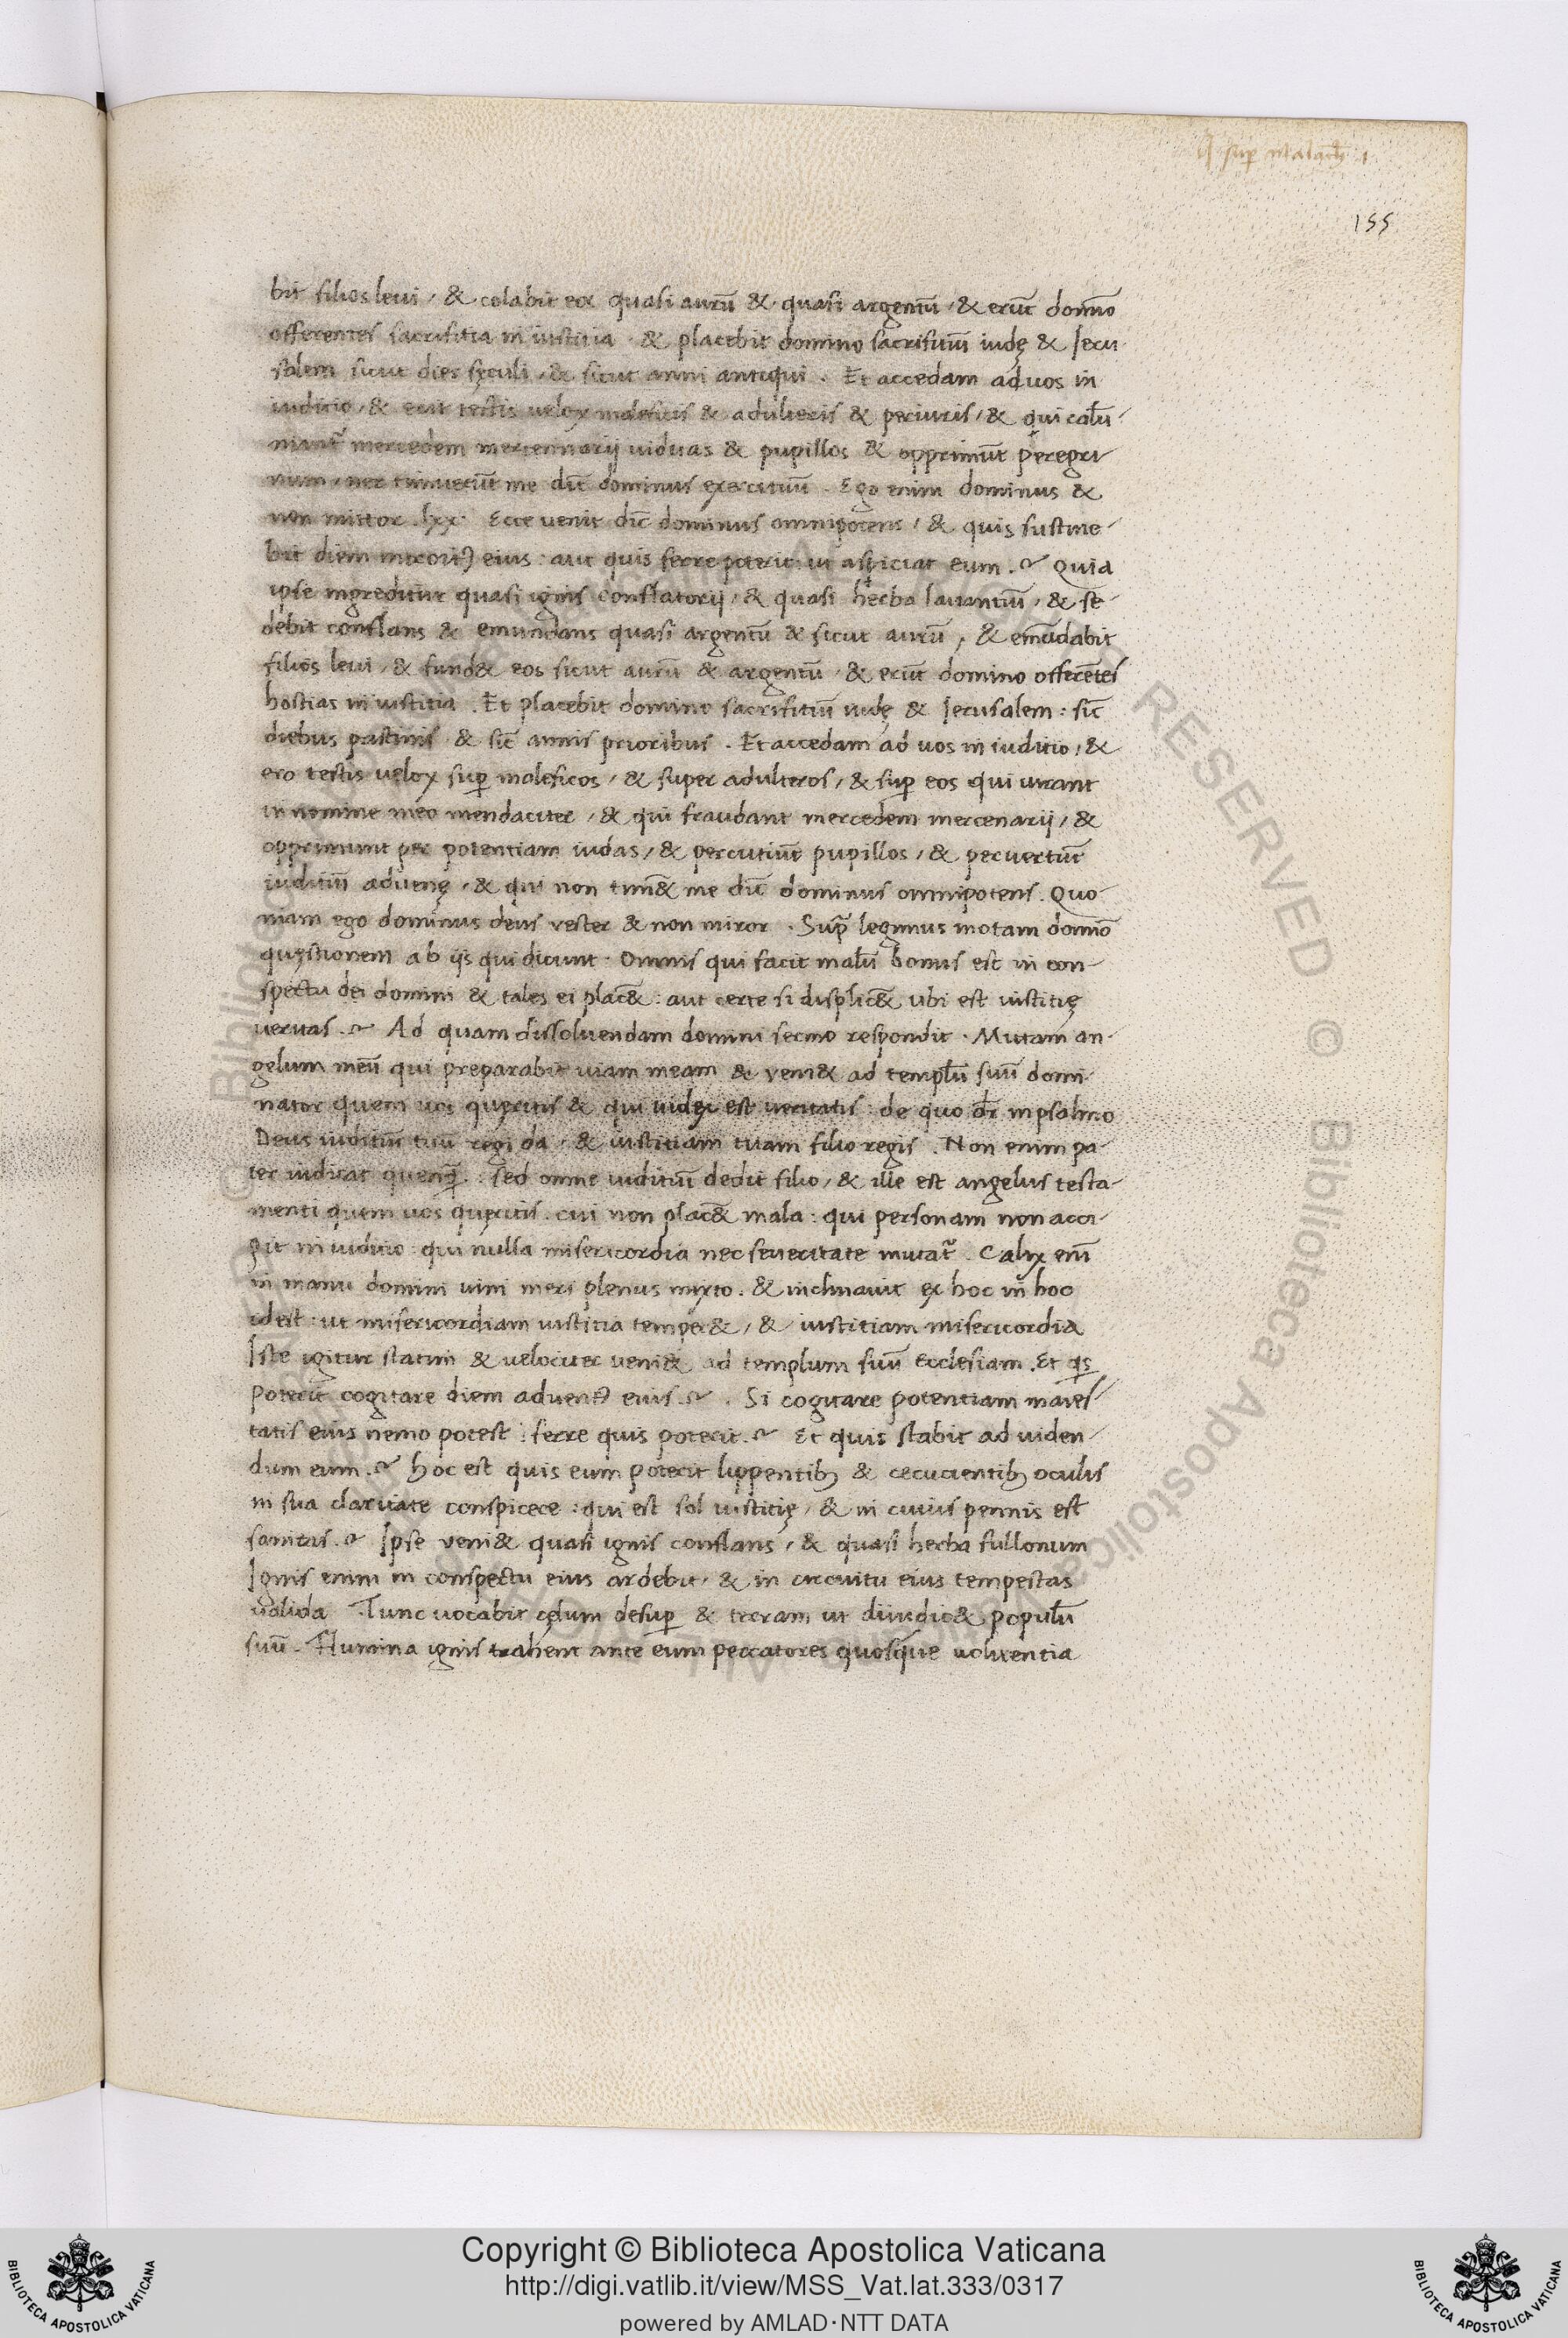 q sup malach i
155
bit filios leui, & colabit eos quasi aurū & quasi argentū, & erūt domīo
offerentes sacrifitia in iustitia. & placebit domino sacrifitiū iudę & Ieru-
salem sicut dies sęculi, & sicut anni antiqui. Et accedam ad uos in
iuditio, & erit testis uelox maleficis & adulteris & periuris, & qui calū-
niant mercedem mercennarij uiduas & pupillos & opprimūt peregri-
num, nec timuerūt me dic̄ dominus exercituū. Ego enim dominus &
non mittor. lxx. Ecce uenit dic̄ dominus omnipotens, & quis sustine-
bit diem introitꝰ eius: aut quis ferre poterit ut aspiciat eum.? Quia
ipse ingreditur quasi ignis conflatorij, & quasi herba lauantiū, & se-
debit conflans & emundans quasi argentū & sicut aurū, & emūdabit
filios leui, & fund& eos sicut aurū & argentū, & erūt domino offerētes
hostias in iustitia. Et placebit domino sacrifitiū iudę & Ierusalem: sic̄
diebus pristinis & sic̄ annis prioribus. Et accedam ad uos in iuditio, &
ero testis uelox sup̄ maleficos, & super adulteros, & sup̄ eos qui iurant
in nomine meo mendaciter, & qui fraudant mercedem mercenarij, &
opprimunt per potentiam iudas, & percutiūt pupillos, & peruertūt
iuditiū aduenę, & qui non tim& me dic̄ dominus omnipotens. Quo-
niam ego dominus deus uester & non miror. Supᵃ legimus motam domīo
quęstionem ab ijs qui dicunt. Omnis qui facit malū bonus est in con-
spectu dei domini & tales ei plac&: aut certe si displic& ubi est iustitię
ueritas.? Ad quam dissoluendam domini sermo respondit. Mittam an-
gelum meū qui preparabit uiam meam & ueni& ad templū suū domi-
nator quem uos quęritis & qui iudex est ueritatis: de quo dr̄ in psalmo
Deus iuditiū tuū regi da, & iustitiam tuam filio regis. Non enim pa-
ter iudicat quenq̄: sed omne iuditiū dedit filio, & ille est angelus testa-
menti quem uos quęritis. cui non plac& mala: qui personam non acci-
pit in iuditio: qui nulla misericordia nec seueritate mutat̄. Calix enī
in manu domini uini meri plenus mixto. & inclinauit ex hoc in hoc
idest: ut misericordiam iustitia temper&, & iustitiam misericordia
Iste igitur statim & uelociter ueni& ad templum suū Ecclesiam. Et qs
poterit cogitare diem aduentꝰ eius.? Si cogitare potentiam maies-
tatis eius nemo potest: ferre quis poterit.? Et quis stabit ad uiden-
dum eum.? hoc est quis eum poterit lippentibꝫ & cecucientibꝫ oculis
in sua claritate conspicere: qui est sol iustitię, & in cuius pennis est
sanitas.? Ipse ueni& quasi ignis conflans, & quasi herba fullonum
Ignis enim in conspectu eius ardebit, & in circuitu eius tempestas
ualida. Tunc uocabit cęlum desup̄ & terram ut diiudic& populū
suū. Flumina ignis trahent ante eum peccatores quosque uoluentia
Copyright © Biblioteca Apostolica Vaticana
http://digi.vatlib.it/view/MSS_Vat.lat.333/0317
powered by AMLAD·NTT DATA
BIBLIOTECA APOSTOLICA VATICANA
BIBLIOTECA APOSTOLICA VATICANA